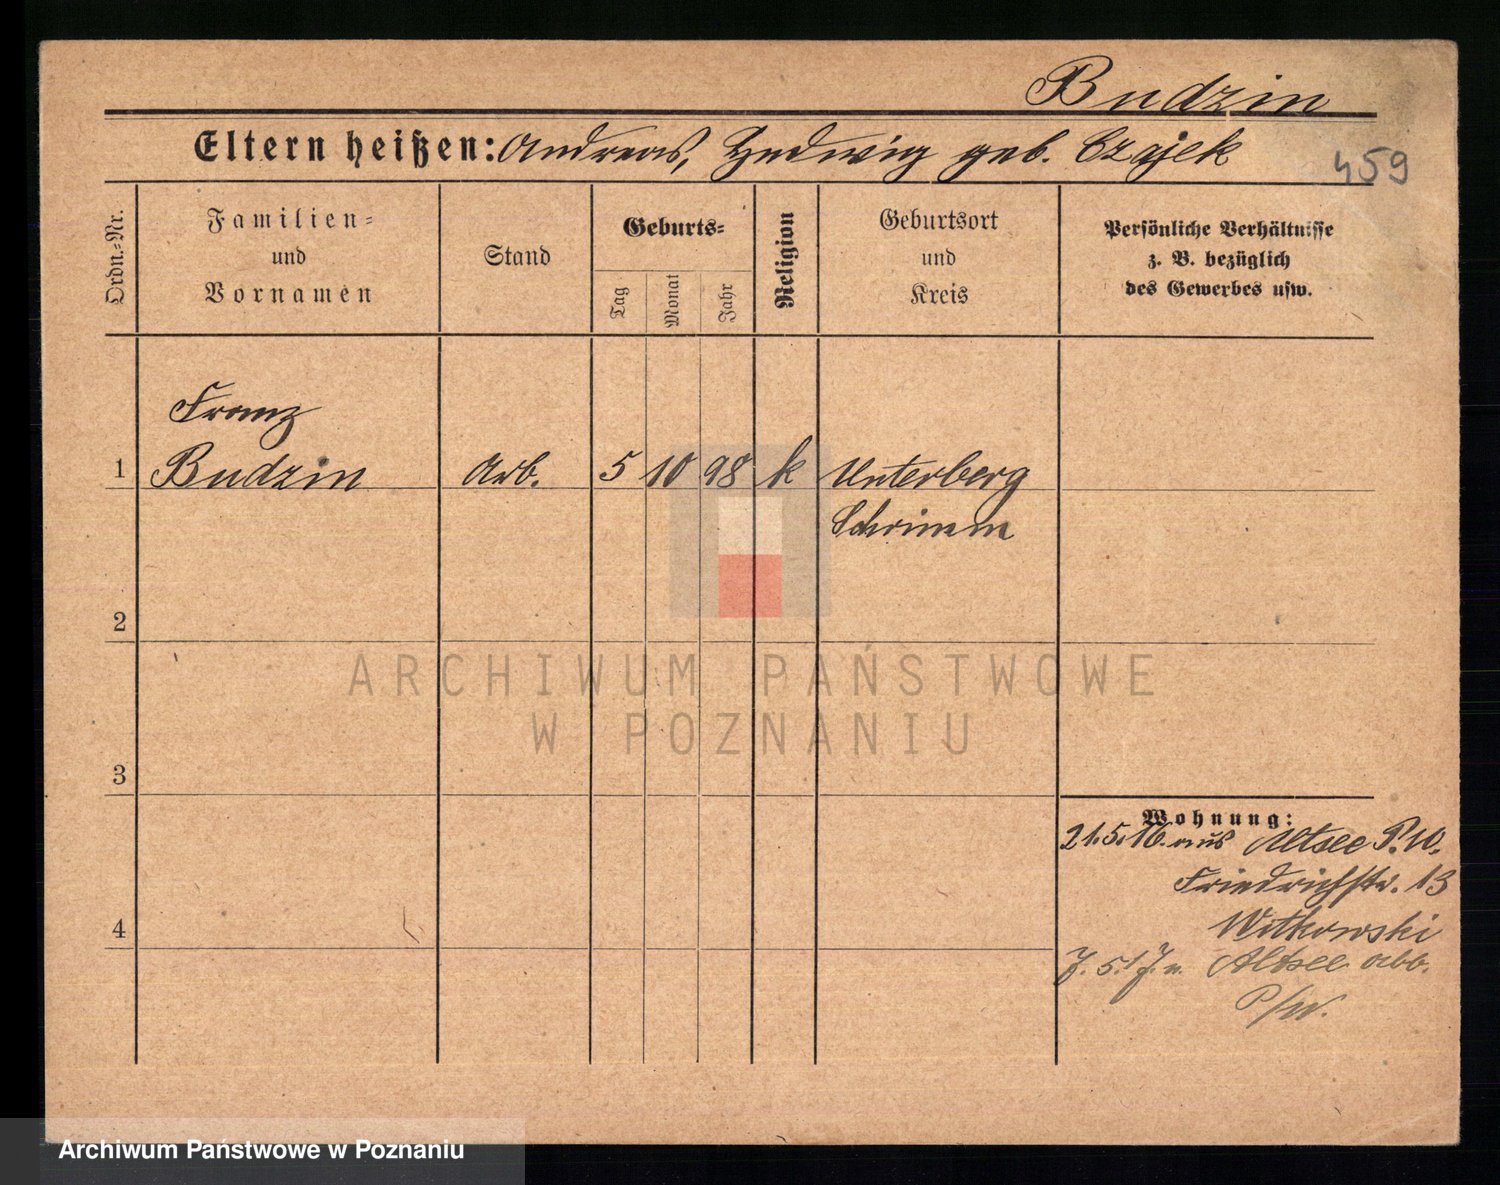 Budzin
Eltern heißen: Andreas, Hedwig geb. Czajek
459
Ordn.-Nr.
Familien-
und
Vornamen
Stand
Geburts-
Tag
Monat
Jahr
Religion
Geburtsort
und
Kreis
Persönliche Verhältnisse
z. B. bezüglich
des Gewerbes usw.
Franz
1 Budzin Arb. 5 10 98 k Unterberg
Schrimm
2
ARCHIWUM PAŃSTWOWE
W POZNANIU
3
Wohnung:
21.5.16. aus Altsee P.W.
Friedrichstr. 13
Witkowski
4
7. 5. 17. n. Altsee abb.
P/W.
Archiwum Państwowe w Poznaniu